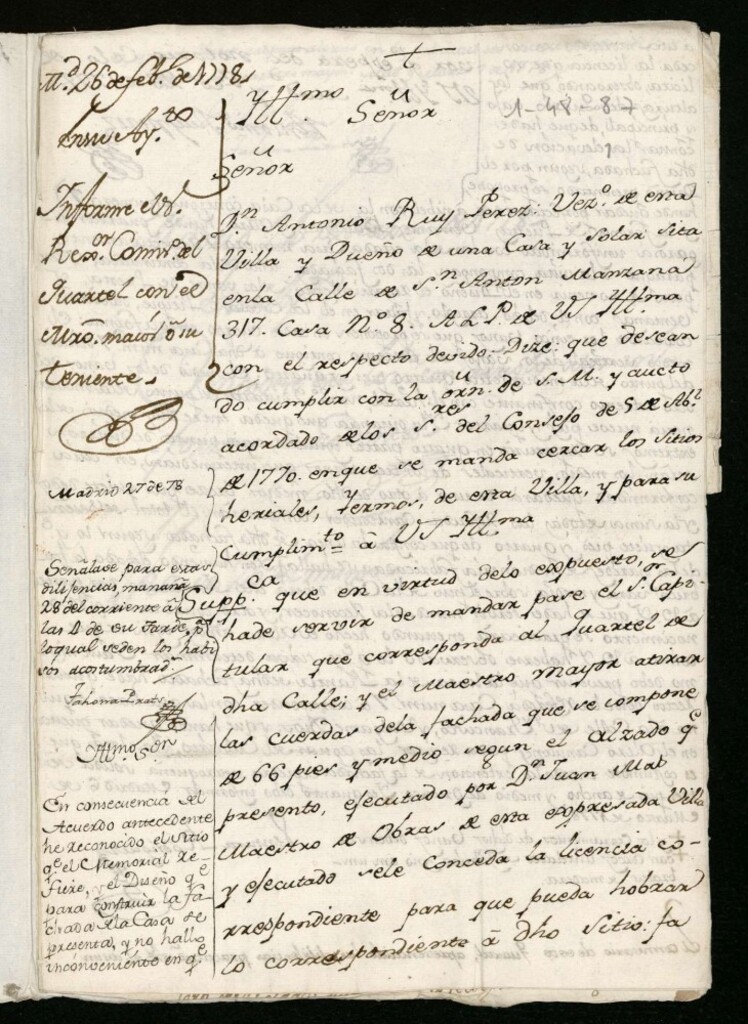 M.d 26 de feb.o de 1778
En su Ay.to
Informe el S.r
Rex.or Comis.o del
Quartel con el
Mro. maior ō su
Teniente.
Madrid 27 de 78
Señalase para estas
diligencias, mañana
28 del corriente á
las 4 de su tarde, p.a
lo qual se den los habi
sos acostumbrad.s
Yll.mo S.or
En consecuencia del
Acuerdo antecedente
he reconocido el sitio
q.e el Memorial re-
fiere, y el Diseño q.e
para construir la fa
chada de la Casa se
presenta, y no hallo
inconveniente en q.e
t
Yllmo Señor
1-48-87
1
Señor
D.n Antonio Ruy Perez: Vez.o de esta
Villa y Dueño de una Casa y Solar sita
en la Calle de S.n Anton Manzana
317. Casa N.o 8. A L P. de VS Yllma
con el respecto devido. Dize: que desean
do cumplir con la orn. de S. M. y aucto
acordado de los S.res del Consejo de 5 de Ab.l
de 1770. en que se manda cercar los sitios
heriales, y ermos, de esta Villa, y para su
Cumplim.to á VS Yllma
Supp.ca que en virtud de lo expuesto, se
ha de servir de mandar pase el S.or Capi-
tular que corresponda al Quartel de
dha Calle; y el Maestro mayor atirar
las cuerdas de la fachada que se compone
de 66 pies y medio segun el alzado q.e
presento, ejecutado por D.n Juan Mat
Maestro de Obras de esta expresada Villa
y ejecutado sele Conceda la licencia co-
rrespondiente para que pueda hobrar
lo correspondiente á dho Sitio: fa